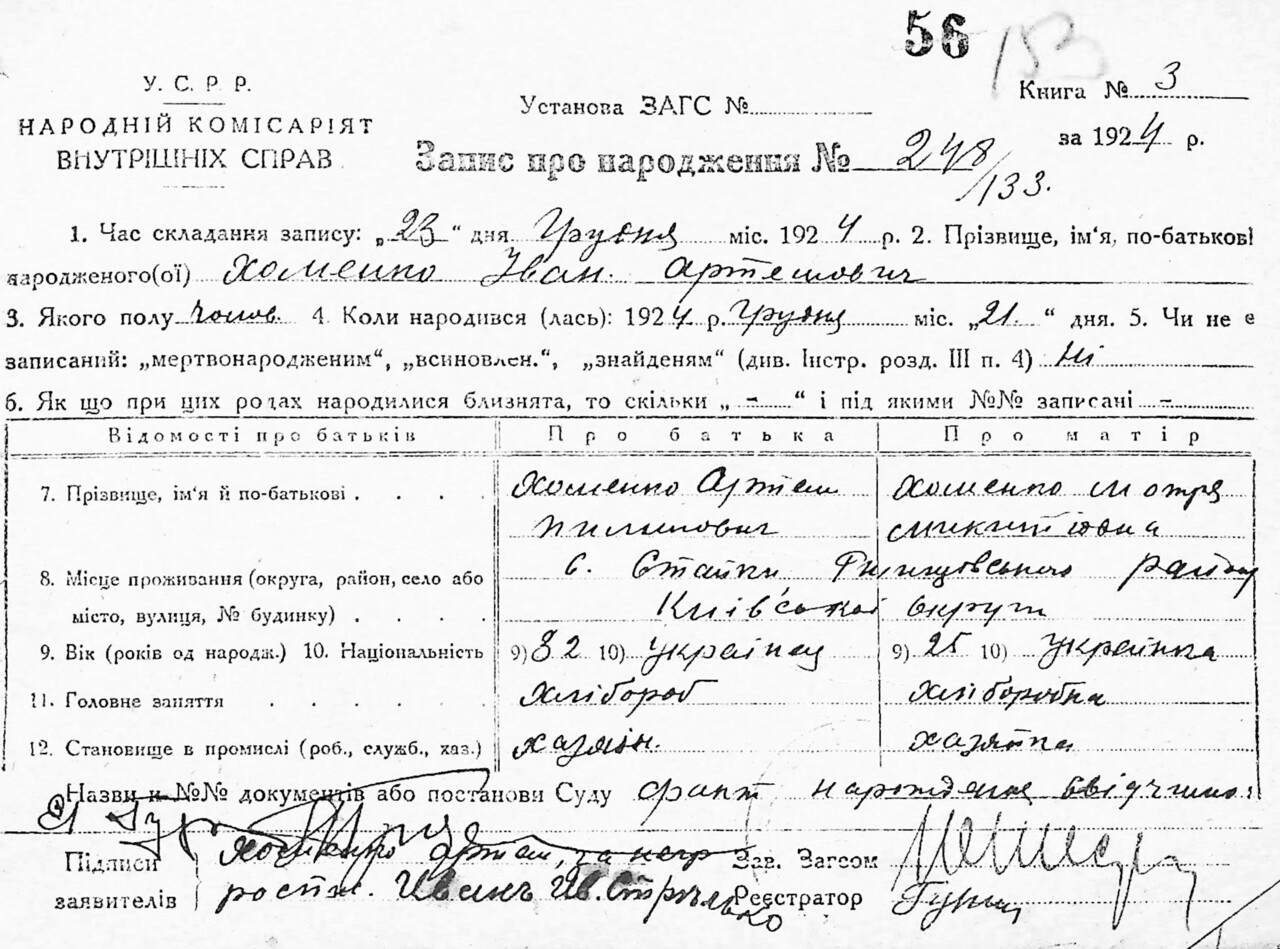 56 153
У. С. Р. Р.
НАРОДНІЙ КОМІСАРІЯТ
ВНУТРІШНІХ СПРАВ
Установа ЗАГС №
Книга № 3
за 1924 р.
Запис про народження № 248/133.
1. Час складання запису: „23“ дня Грудня міс. 1924 р. 2. Прізвище, ім'я, по-батькові
народженого(ої) Хоменко Іван Артемович
3. Якого полу чолов. 4. Коли народився (лась): 1924 р. Грудня міс. „21.“ дня. 5. Чи не є
записаний: „мертвонародженим“, „всиновлен.“, „знайденям“ (див. Інстр. розд. III п. 4) Ні
6. Як що при цих родах народилися близнята, то скільки „ - “ і під якими №№ записані -
Відомості про батьків Про батька Про матір
7. Прізвище, ім'я й по-батькові . . . . Хоменко Артем Хоменко Мотря
Пилипович Микитівна
8. Місце проживання (округа, район, село або с. Стайки Ржищовського району
місто, вулиця, № будинку) . . . . Київської округи
9. Вік (років од народж.) 10. Національність 9) 32 10) Українец 9) 25 10) Українка
11. Головне заняття . . . . . Хлібороб Хліборобка
12. Становище в промислі (роб., служб., хаз.) хазяїн. хазяйка
Назви и №№ документів або постанови Суду факт народження свідчимо:
Підписи Хоменко Артем, за негр Зав. Загсом
заявителів роспис. Иванъ Ив. Стрѣлько Реєстратор